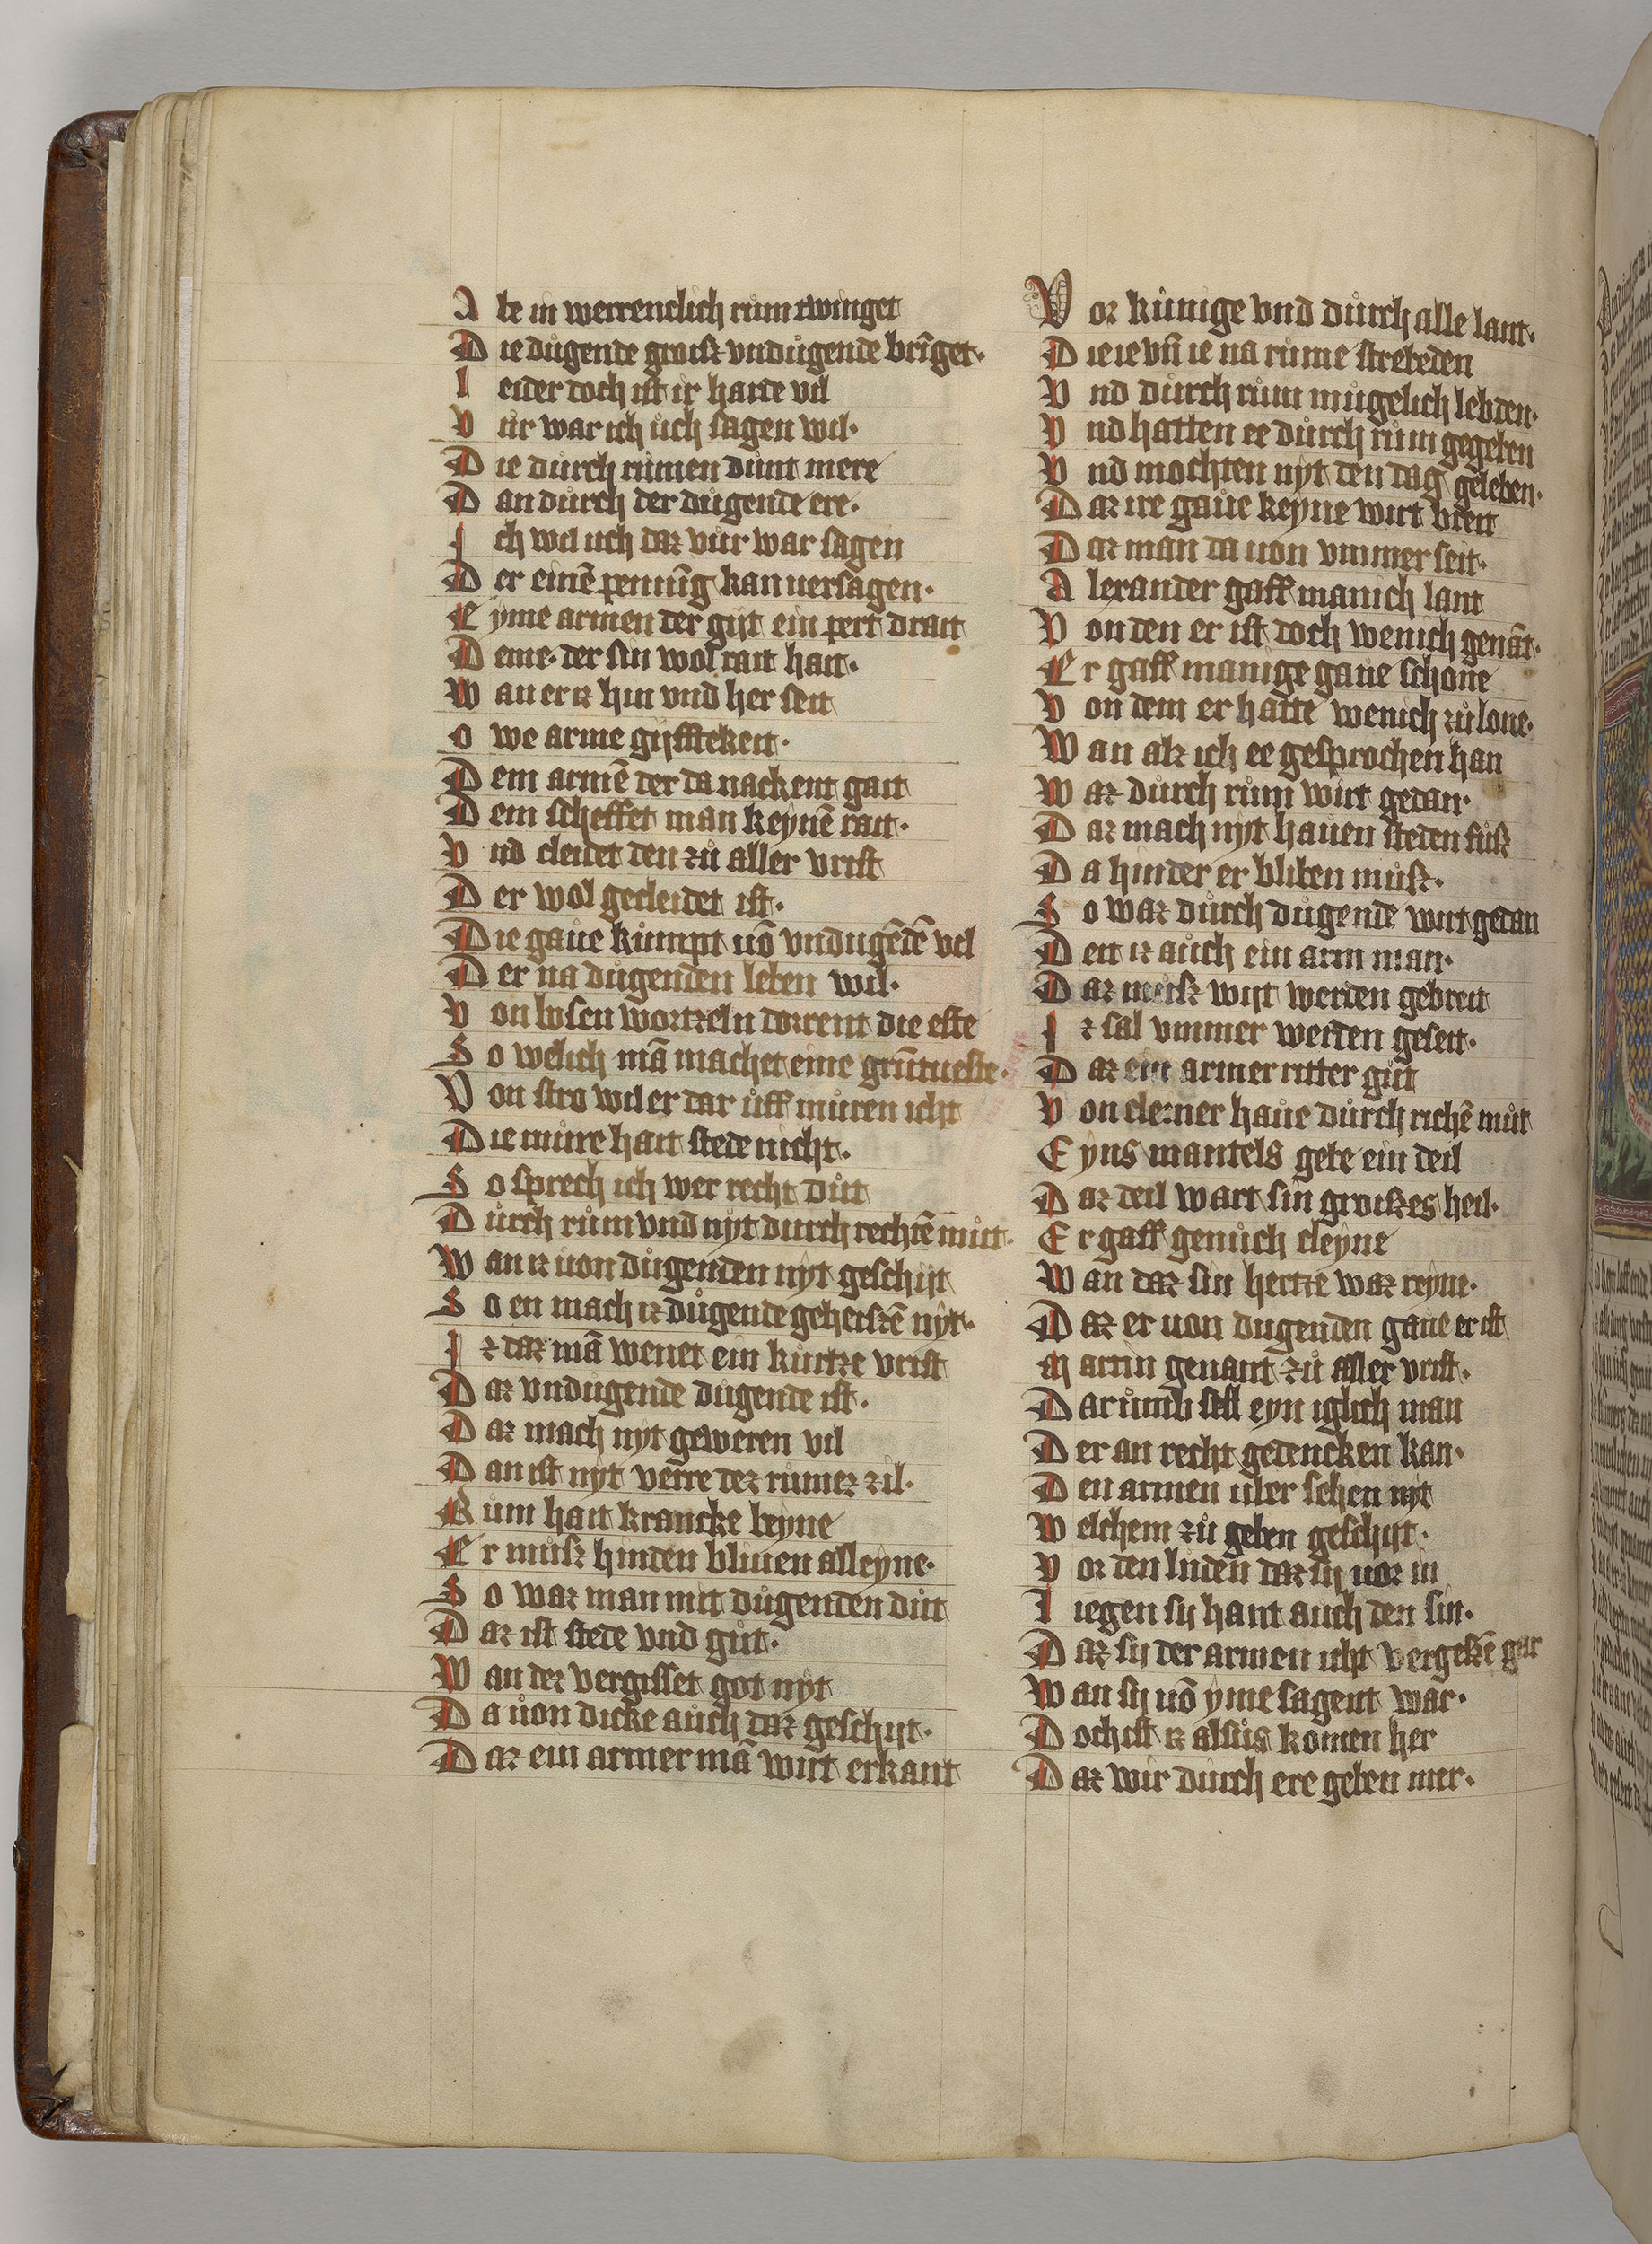 A be in werrenclich rům twinget
D ie důgende groisz vndůgende brīget·
l eider doch ist ir harte vil
V ůr war ich ůch sagen wil·
D ie důrch růmen důnt mere
D an důrch der důgende ere·
I ch wil uch daz vůr war sagen
D er einē pennīg kan uersagen·
E yme armen der gijt ein pert drait
D eme· der sin wol rait hait·
W an er iz hin vnd her seit
O we arme gijfftekeit·
D em armē der da nackent gait
D em scheffet man keynē rait·
V nd cleidet den zů aller vrist
D er wol gecleidet ist·
D ie gaůe kůmpt uō vndugēdē vil
D er na důgenden leben wil·
V on bosen wortzeln dorrent die este
S o welich mā machet eine grūtueste·
V on stro wil er dar ůff můren icht
D ie můre hait stede nicht·
S o sprech ich wer recht důit
D ůrch rům vnd nyt durch rechtē můt·
W an iz uon důgenden nyt geschijt
S o en mach iz důgende geheiszē nyt·
I z daz mā wenet ein kůrtze vrist
D az vndůgende důgende ist·
D az mach nyt geweren vil
D an ist nyt verre dez růmez zil·
R ům hait krancke beyne
E r můsz hinden bliuen alleyne·
S o waz man mit důgenden důit
D az ist stede vnd gůt·
W an dez vergisset got nyt
D a ůon dicke aůch daz geschijt·
D az ein armer mā wirt erkant
V or kůnige vnd důrch alle lant·
D ie ie vn̄ ie na růme strebeden
V nd důrch rům můgelich lebden·
V nd hatten ee důrch rům gegeben
V nd mochten nyt den dag geleben·
D az ire gaůe keyne wirt breit
D az man da uon vmmer seit·
A lexander gaff manich lant
V on den er ist doch wenich genāt·
E r gaff manige gaue schone
V on dem er hatte wenich zů lone·
W an alz ich ee gesprochen han
W az důrch rům wirt gedan·
D az mach nyt haůen steden fůsz
D a hinder er bliben můsz·
S o waz důrch důgende wirt gedan
D eit iz aůch ein arm man·
D az můsz wijt werden gebreit
I z sal vmmer werden geseit·
D az ein armer ritter gijt
V on cleiner haůe důrch richē můt
E yns mantels gebe ein deil
D az deil wart sin groiszes heil·
E r gaff genůch cleyne
W an daz sin hertze waz reyne·
D az er uon dugenden gaue er ist
M artin genant zů aller vrist·
D ar ůmb sall eyn iglich man
D er an recht gedencken kan·
D en armen uber sehen nyt
W elchem zů geben geschijt·
V or den luden daz sij uor in
I iegen sij hant auch den sin·
D az sij der armen niht vergeszē gar
W an sij uō yme sagent war·
D och ist iz alsůs komen her
D az wir důrch ere geben mer·